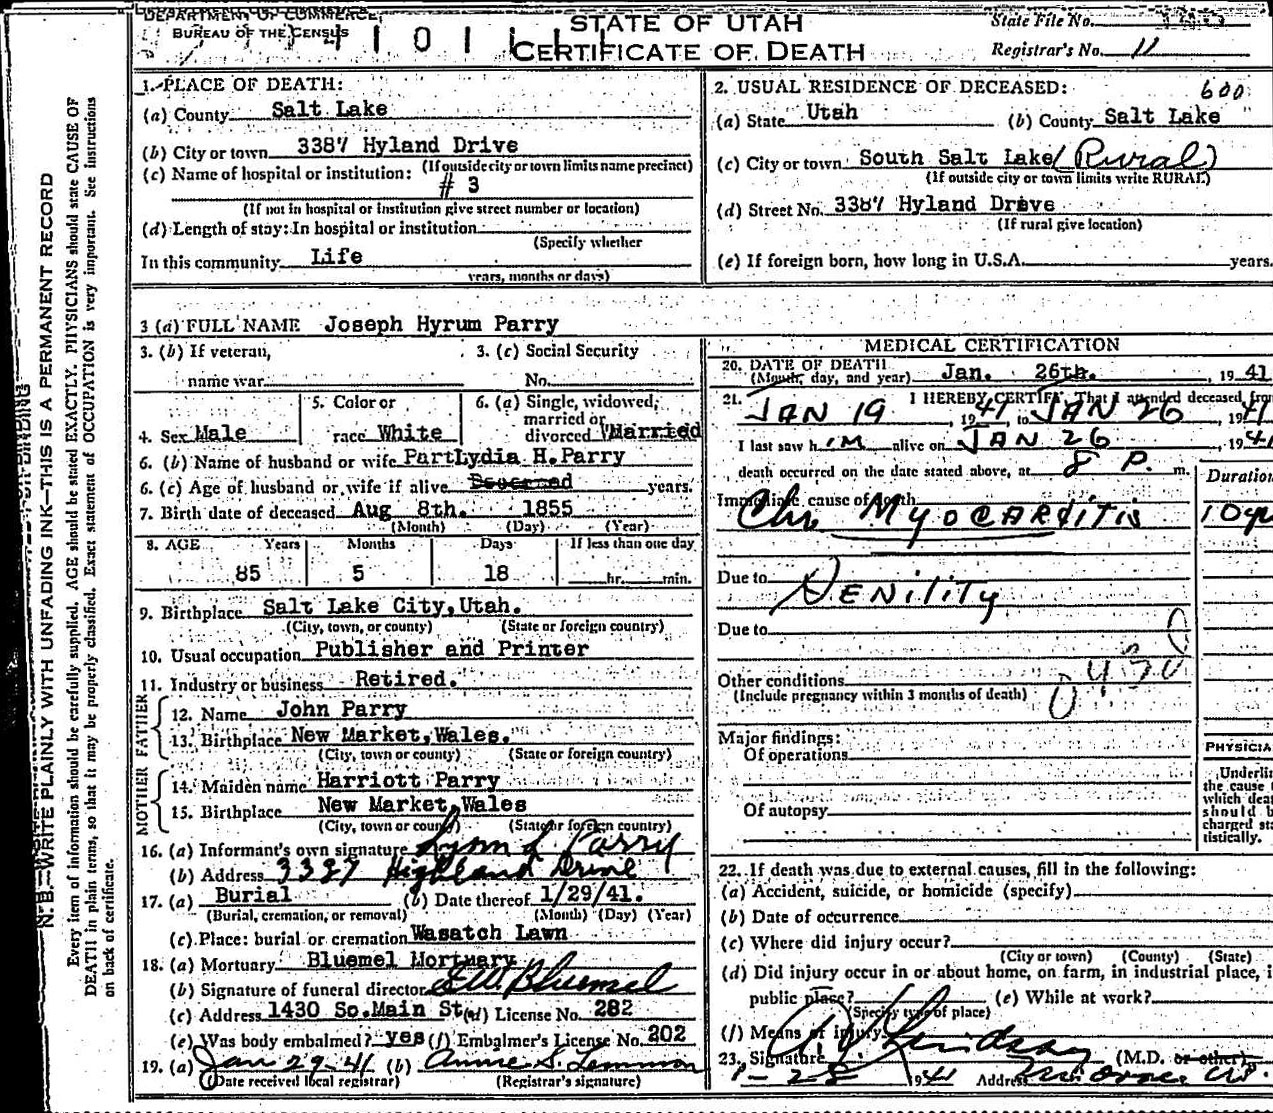 DEPARTMENT OF COMMERCE,
BUREAU OF THE CENSUS
STATE OF UTAH
CERTIFICATE OF DEATH
State File No.
Registrar's No. 11
1. PLACE OF DEATH:
(a) County Salt Lake
(b) City or town 3387 Hyland Drive
(If outside city or town limits name precinct)
(c) Name of hospital or institution:
# 3
(If not in hospital or institution give street number or location)
(d) Length of stay: In hospital or institution
(Specify whether
In this community Life
years, months or days)
2. USUAL RESIDENCE OF DECEASED: 600
(a) State Utah (b) County Salt Lake
(c) City or town South Salt Lake (Rural)
(If outside city or town limits write RURAL)
(d) Street No. 3387 Hyland Drive
(If rural give location)
(e) If foreign born, how long in U.S.A. years.
3 (a) FULL NAME Joseph Hyrum Parry
3. (b) If veteran, 3. (c) Social Security
name war No.
4. Sex Male
5. Color or
race White
6. (a) Single, widowed,
married or
divorced Married
6. (b) Name of husband or wife PartLydia H.Parry
6. (c) Age of husband or wife if alive years.
7. Birth date of deceased Aug 8th. 1855
(Month) (Day) (Year)
8. AGE Years Months Days If less than one day
85 5 18 hr. min.
9. Birthplace Salt Lake City,Utah.
(City, town, or county) (State or foreign country)
10. Usual occupation Publisher and Printer
11. Industry or business Retired.
FATHER
12. Name John Parry
13. Birthplace New Market,Wales.
(City, town or county) (State or foreign country)
MOTHER
14. Maiden name Harriott Parry
15. Birthplace New Market,Wales
(City, town or county) (State or foreign country)
16. (a) Informant's own signature Lynn L Parry
(b) Address 3387 Highland Drive
17. (a) Burial (b) Date thereof 1/29/41.
(Burial, cremation, or removal) (Month) (Day) (Year)
(c) Place: burial or cremation Wasatch Lawn
18. (a) Mortuary Bluemel Mortuary
(b) Signature of funeral director E.W. Bluemel
(c) Address 1430 So.Main St. (d) License No. 282
(e) Was body embalmed? yes (f) Embalmer's License No. 202
19. (a) Jan 29-41 (b) Annie S. Lemmon
(Date received local registrar) (Registrar's signature)
MEDICAL CERTIFICATION
20. DATE OF DEATH
(Month, day, and year) Jan. 26th. , 19 41
21. I HEREBY CERTIFY, That I attended deceased from
JAN 19 , 1941, to JAN 26 1941
I last saw h IM alive on JAN 26 , 1941
death occurred on the date stated above, at 8 P. m.
Duration
Immediate cause of death
Chr. MYOCARDITIS 10 yr
Due to SENILITY
Due to
Other conditions
(Include pregnancy within 3 months of death)
Major findings:
Of operations
Of autopsy
PHYSICIA
Underlin
the cause t
which dea
should b
charged sta
tistically.
22. If death was due to external causes, fill in the following:
(a) Accident, suicide, or homicide (specify)
(b) Date of occurrence
(c) Where did injury occur?
(City or town) (County) (State)
(d) Did injury occur in or about home, on farm, in industrial place, i
public place? (e) While at work?
(Specify type of place)
(f) Means of injury
23. Signature Lindsay (M.D. or other)
1-28 1941 Address
N. B.—WRITE PLAINLY WITH UNFADING INK—THIS IS A PERMANENT RECORD
Every item of information should be carefully supplied. AGE should be stated EXACTLY. PHYSICIANS should state CAUSE OF
DEATH in plain terms, so that it may be properly classified. Exact statement of OCCUPATION is very important. See Instructions
on back of certificate.